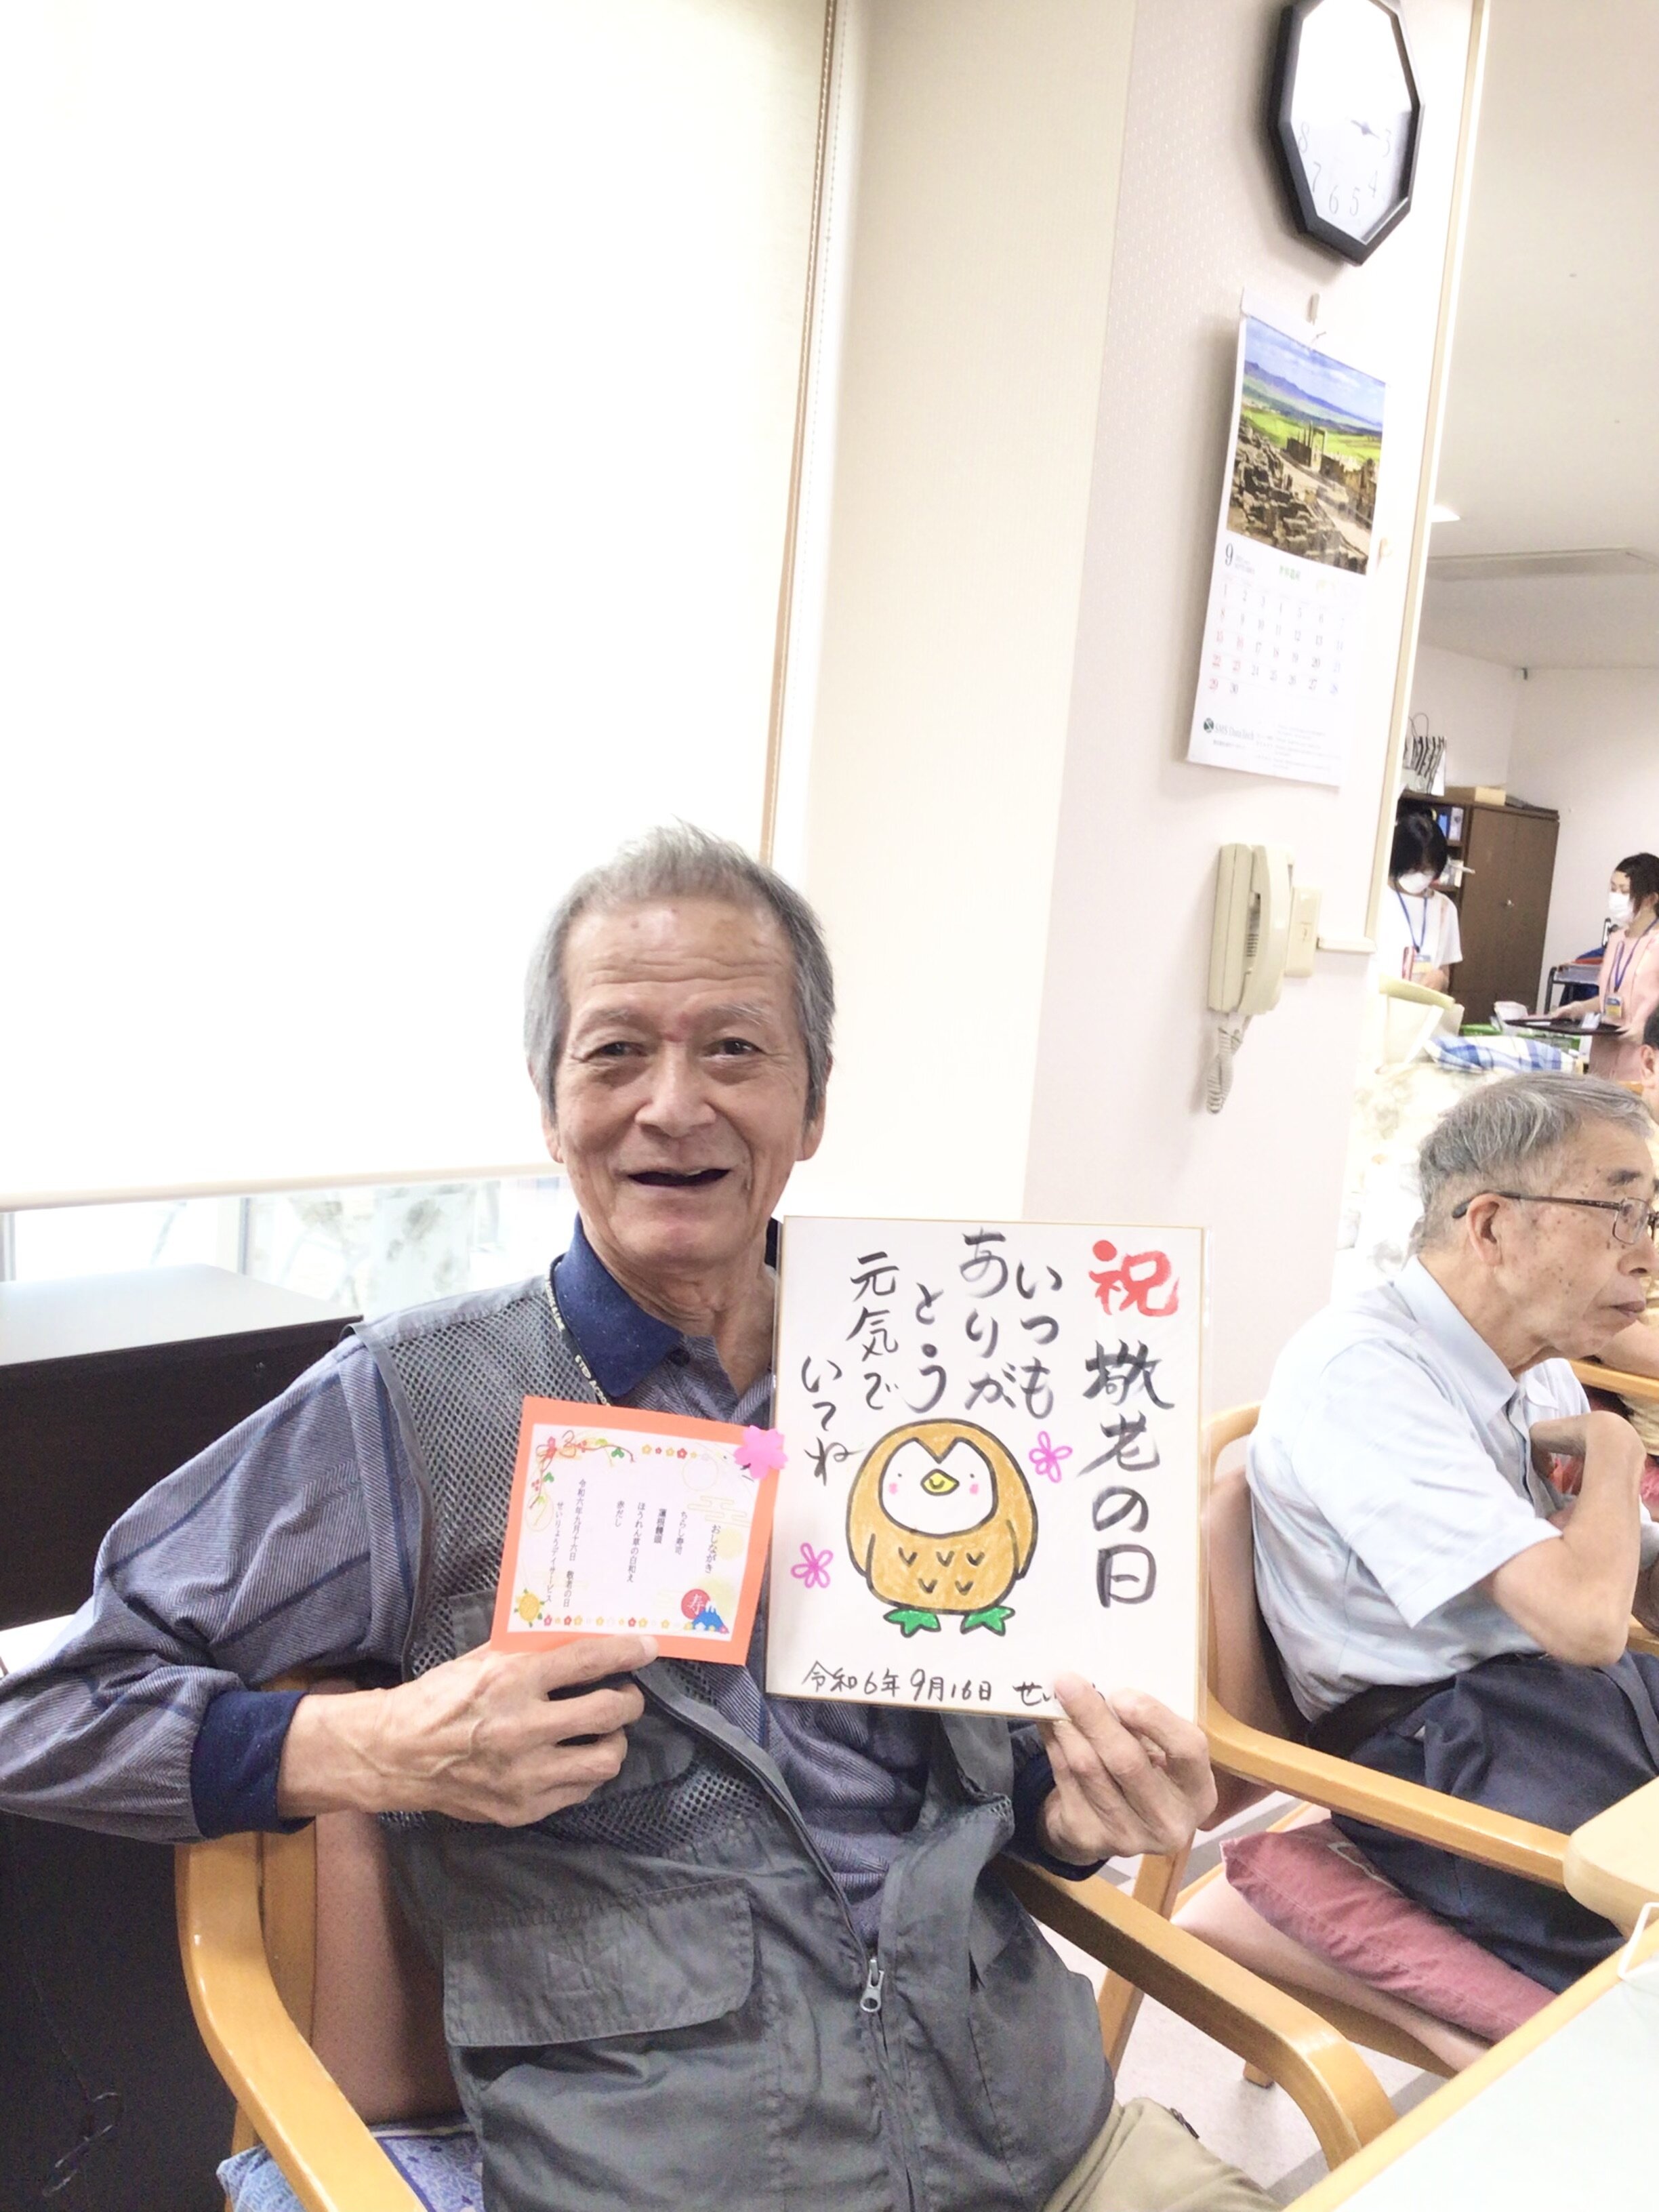 祝 敬老の日
いつも
ありが
とう
元気で
いてね
令和6年9月16日
おしながき
ちらし寿司
蓮根饅頭
ほうれん草の白和え
赤だし
令和六年九月十六日 敬老の日
せいりょうデイサービス
寿
3
4
5
6
7
8
9
1 2 3 4 5 6
8 9 10 11 12 13 14
15 16 17 18 19 20 21
22 23 24 25 26 27 28
29 30